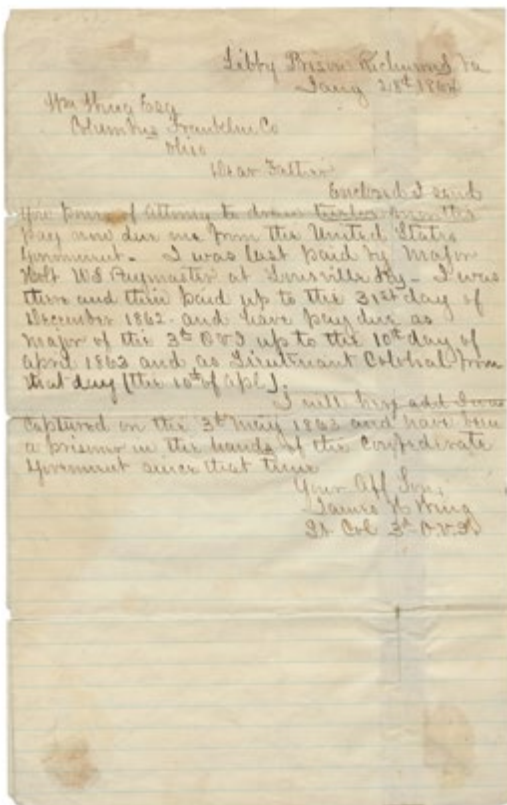 Libby Prison Richmond Va
Jany 28th 1864
Wm Esq
Columbus Franklin Co
Ohio
Dear Father
Enclosed I send
you power of Attorney to draw months
pay now due me from the United States
Government. I was last paid by Major
Holt US Paymaster at Louisville Ky - I was
then and there paid up to the 31st day of
December 1862 - and have pay due as
Major of the 3d OVI up to the 10th day of
April 1863 and as Lieutenant from
that day (the 10th of Apl).
I will here add I was
captured on the 3d May 1863 and have been
a prisoner in the hands of the Confederate
Government since that time
Your Aff Son,
James H
Lt Col 3d O.V.I.